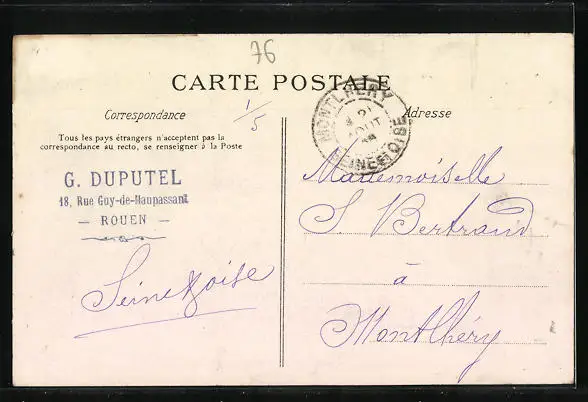 76
CARTE POSTALE
Correspondance
1/5
Adresse
Tous les pays étrangers n'acceptent pas la
correspondance au recto, se renseigner à la Poste
MONTLHERY
21
AOUT
SEINE-ET-OISE
G. DUPUTEL
18, Rue Guy-de-Maupassant
— ROUEN —
Seine & Oise
Mademoiselle
S. Bertrand
à
Montlhéry